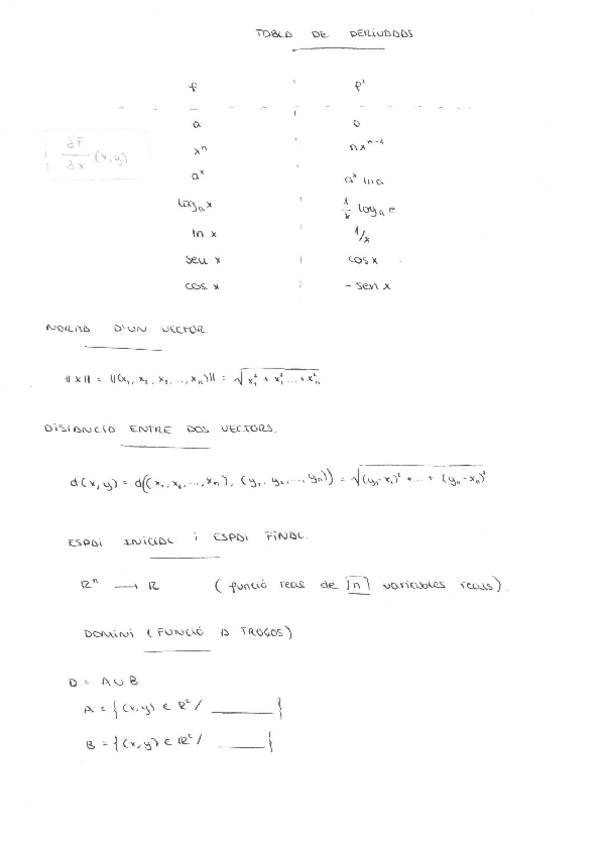 TABLA DE DERIVADAS
f f'
a 0
∂F/∂x (x,y)
xⁿ nxⁿ⁻¹
aˣ aˣ ln a
logₐ x 1/x logₐ e
ln x 1/x
sen x cos x
cos x - sen x
NORMA D'UN VECTOR.
||x|| = ||(x₁, x₂, x₃, ..., xₙ)|| = √(x₁² + x₁² ... + xₙ²)
DISTANCIA ENTRE DOS VECTORS.
d(x,y) = d((x₁, x₂, ..., xₙ), (y₁, y₂, ..., yₙ)) = √((y₁-x₁)² + ... + (yₙ-xₙ)²)
ESPAI INICIAL i ESPAI FINAL.
ℝⁿ → ℝ (funció real de n variables reals).
DOMINI (FUNCIÓ A TROÇOS)
D = A∪B
A = {(x,y) ∈ ℝ² / ______}
B = {(x,y) ∈ ℝ² / ______}